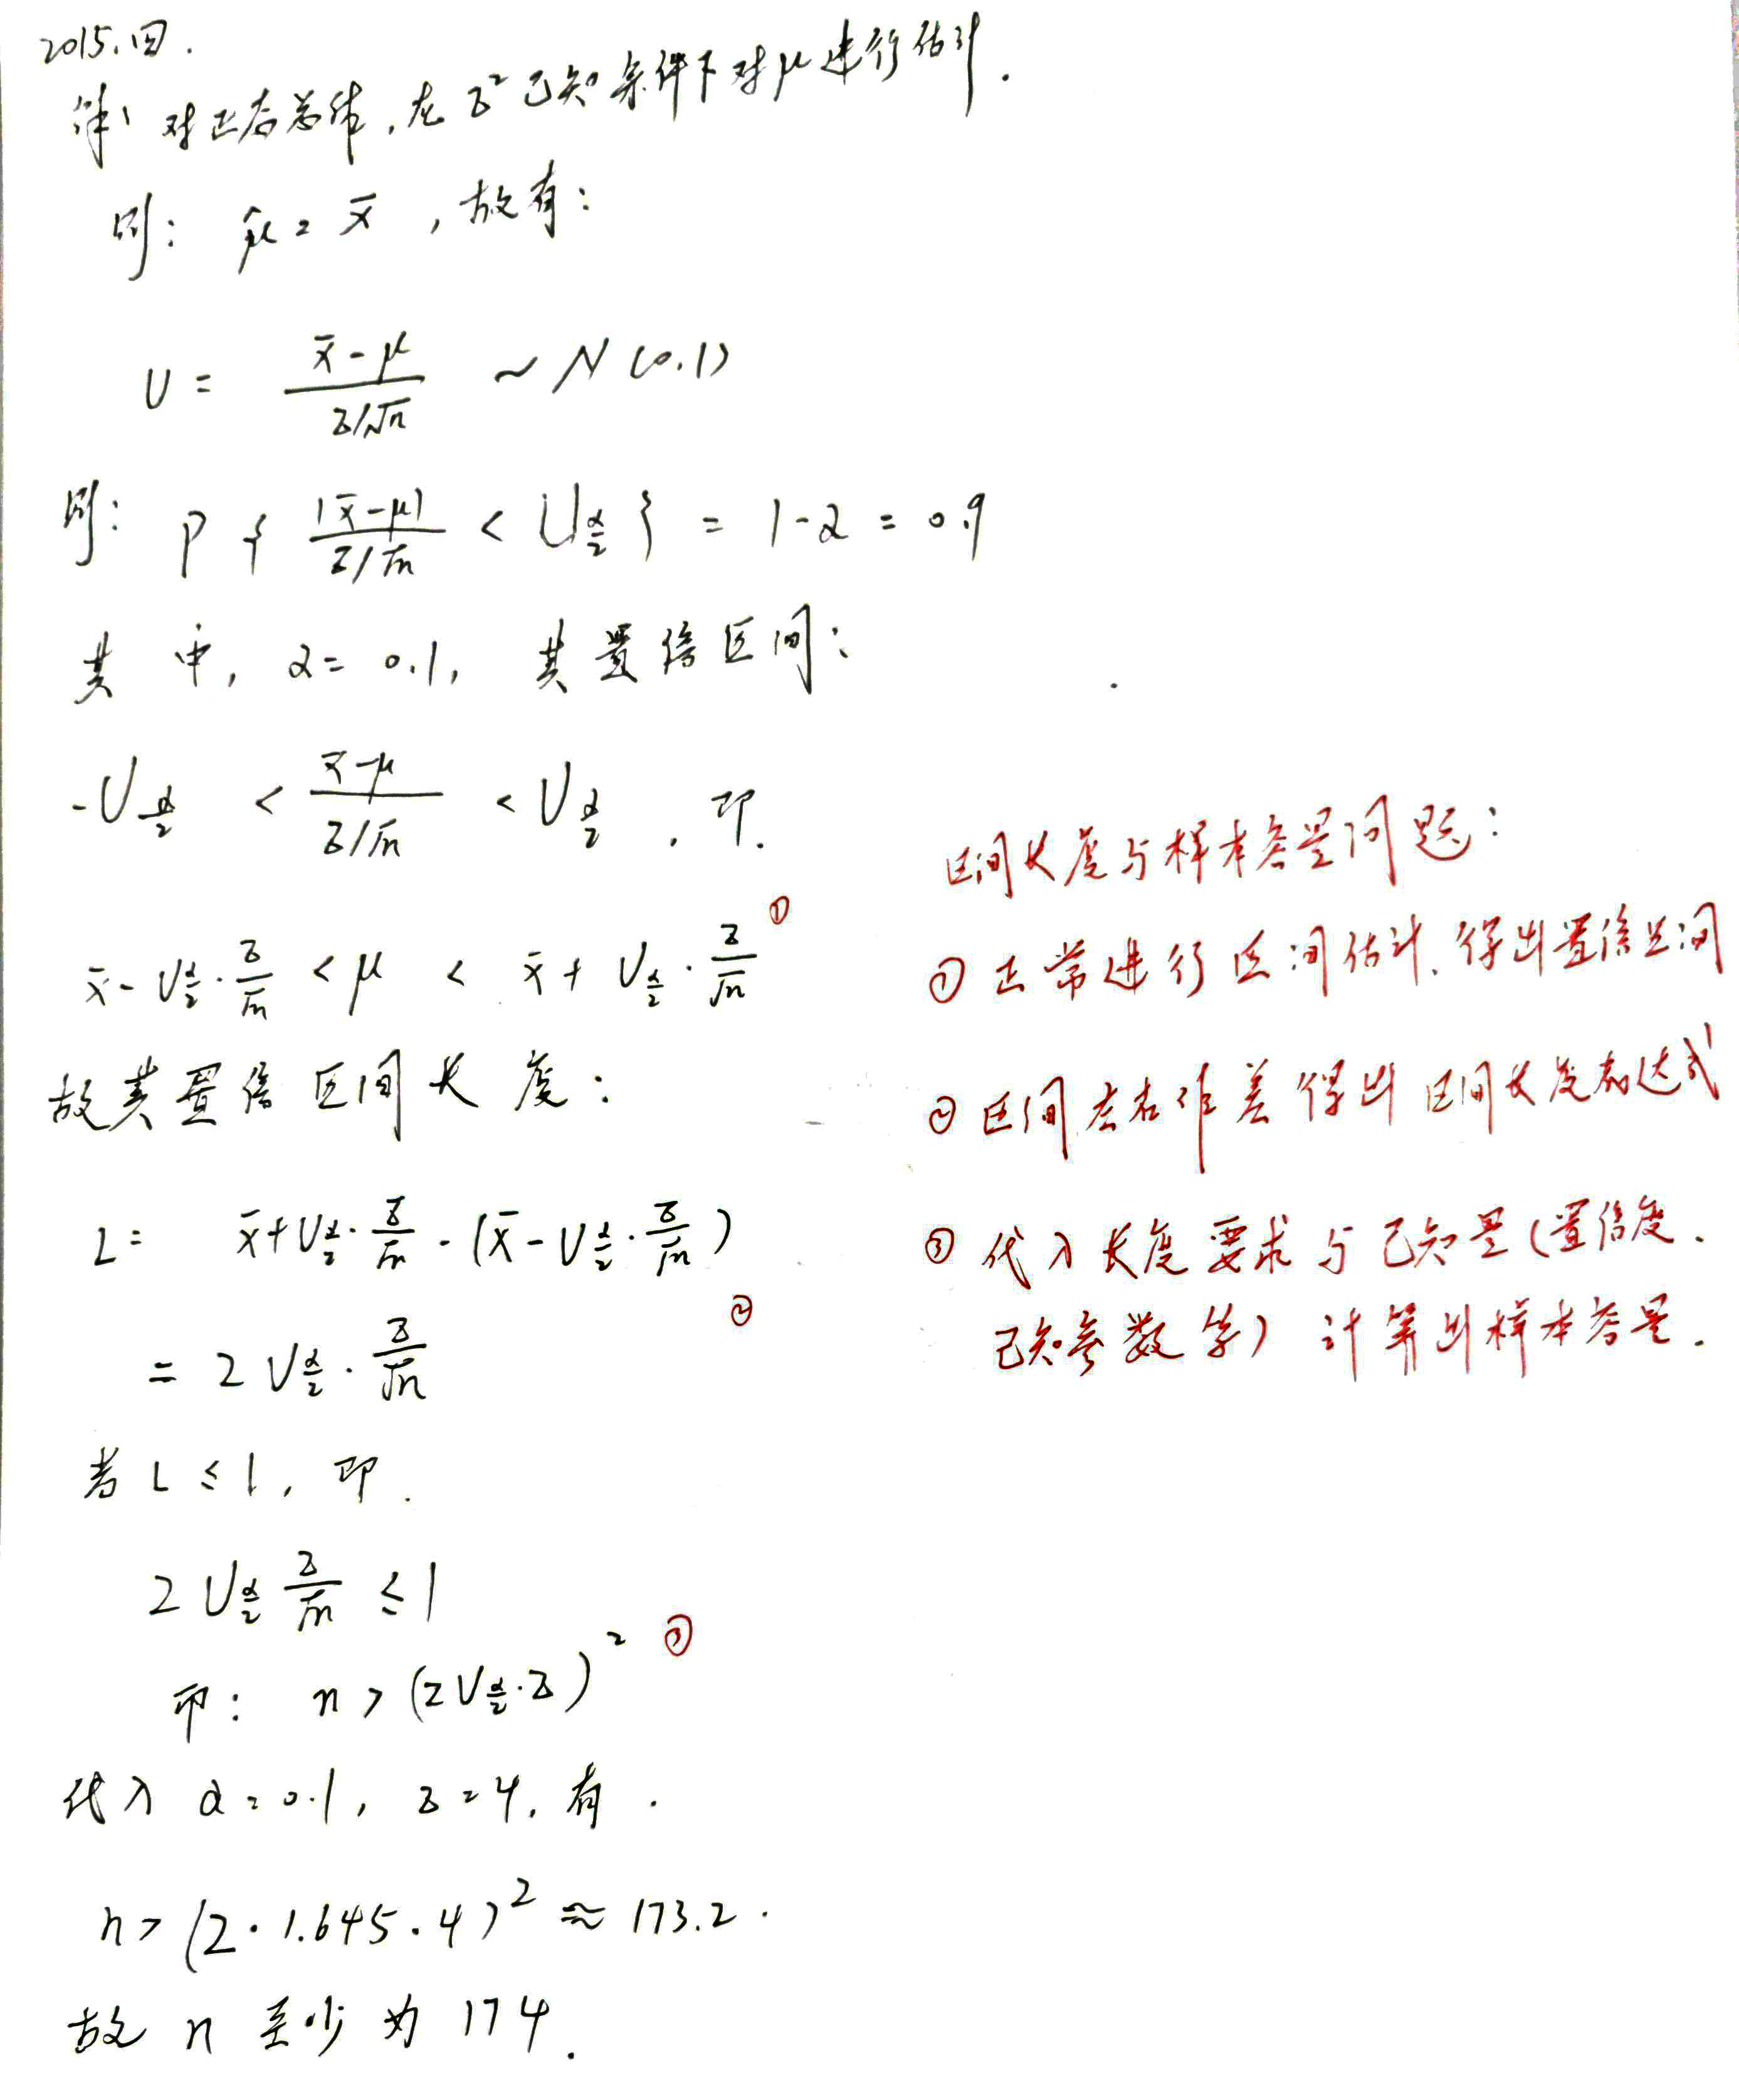 2015.四.
解：对正态总体，在σ²已知条件下对μ进行估计.
则： μ̂ = x̄ ，故有：
U = (x̄-μ)/(σ/√n) ~ N(0,1)
则： P{ |x̄-μ|/(σ/√n) < U_{α/2} } = 1-α = 0.9
其中，α = 0.1，其置信区间：
-U_{α/2} < (x̄-μ)/(σ/√n) < U_{α/2} ，即.
x̄ - U_{α/2}·σ/√n < μ < x̄ + U_{α/2}·σ/√n ①
故其置信区间长度：
L = x̄+U_{α/2}·σ/√n - (x̄-U_{α/2}·σ/√n)
= 2U_{α/2}·σ/√n ②
若 L ≤ 1，即.
2U_{α/2} σ/√n ≤ 1
即： n > (2U_{α/2}·σ)² ③
代入 α=0.1，σ=4，有.
n > (2·1.645·4)² ≈ 173.2.
故 n 至少为 174.
区间长度与样本容量问题：
① 正常进行区间估计，得出置信区间
② 区间左右作差得出区间长度表达式
③ 代入长度要求与已知量（置信度、
已知参数等）计算出样本容量.